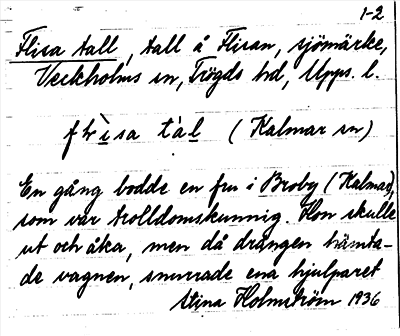 1-2
Flisa tall, tall å Flisan, sjömärke,
Veckholms sn, Trögds hd, Upps. l.
tál (Kalmar sn)
En gång bodde en fru i Broby (Kalmar),
som var trolldomskunnig. Hon skulle
ut och åka, men då drängen hämta-
de vagnen, snurrade ena hjulparet
Stina Holmström 1936